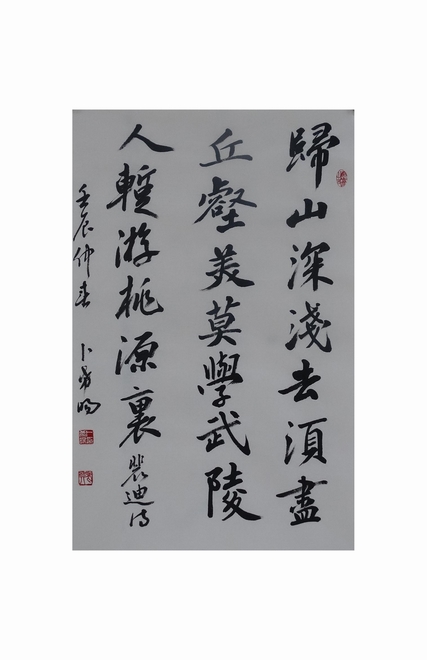 歸山深淺去須盡
丘壑美莫學武陵
人暫游桃源裏裴迪詩
壬辰仲春 卜勇